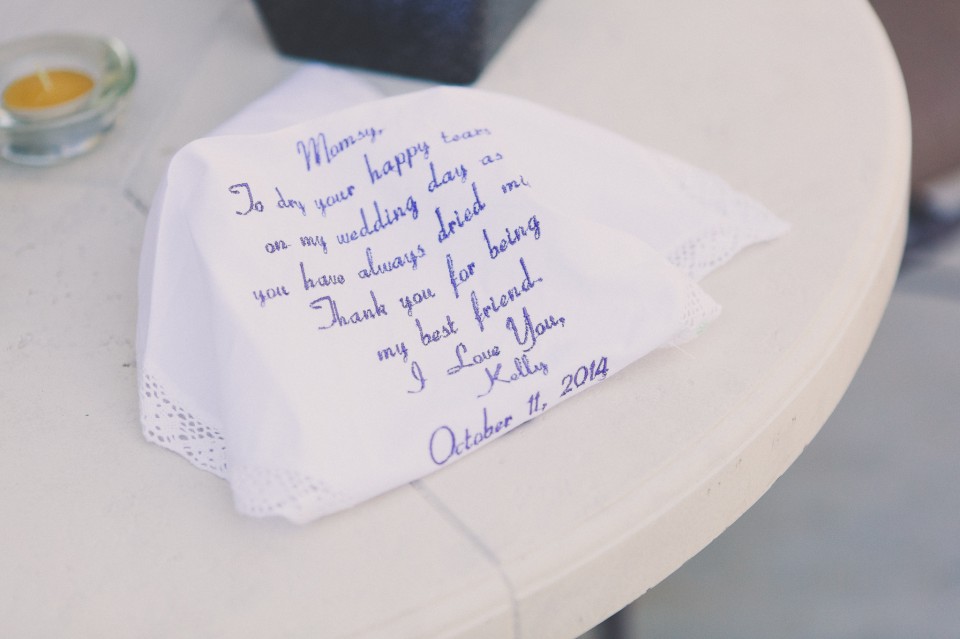 Momsy,
To dry your happy tears
on my wedding day as
you have always dried
Thank you for being
my best friend.
I Love You,
Kelly
October 11, 2014